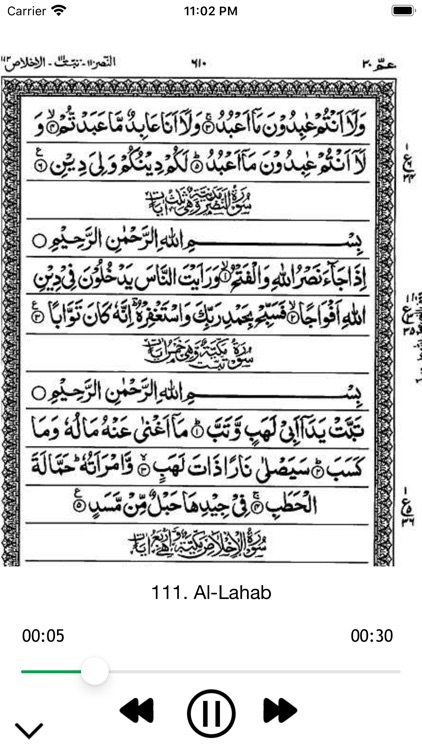 Carrier 11:02 PM
عمّ ٣٠ ٦١٠ النصر١١٠-تبت١١١-الاخلاص١١٢
وَلَآ اَنْتُمْ عٰبِدُوْنَ مَآ اَعْبُدُ ۚ‏﴿۳﴾ وَلَآ اَنَا عَابِدٌ مَّا عَبَدْتُّمْ ۙ‏﴿۴﴾ وَ
لَآ اَنْتُمْ عٰبِدُوْنَ مَآ اَعْبُدُ ؕ‏﴿۵﴾ لَكُمْ دِيْنُكُمْ وَلِيَ دِيْنِ ﴿۶﴾
سُوْرَةُ النَّصْرِ
بِسْمِ اللهِ الرَّحْمٰنِ الرَّحِيْمِ
اِذَا جَآءَ نَصْرُ اللهِ وَالْفَتْحُ ۙ‏﴿۱﴾ وَرَاَيْتَ النَّاسَ يَدْخُلُوْنَ فِيْ دِيْنِ
اللهِ اَفْوَاجًا ۙ‏﴿۲﴾ فَسَبِّحْ بِحَمْدِ رَبِّكَ وَاسْتَغْفِرْهُ ؕ اِنَّهٗ كَانَ تَوَّابًا ﴿۳﴾
سُوْرَةُ تَبَّتْ
بِسْمِ اللهِ الرَّحْمٰنِ الرَّحِيْمِ
تَبَّتْ يَدَآ اَبِيْ لَهَبٍ وَّتَبَّ ؕ‏﴿۱﴾ مَآ اَغْنٰى عَنْهُ مَالُهٗ وَمَا
كَسَبَ ؕ‏﴿۲﴾ سَيَصْلٰى نَارًا ذَاتَ لَهَبٍ ۚۖ‏﴿۳﴾ وَّامْرَاَتُهٗ ؕ حَمَّالَةَ
الْحَطَبِ ۚ‏﴿۴﴾ فِيْ جِيْدِهَا حَبْلٌ مِّنْ مَّسَدٍ ﴿۵﴾
سُوْرَةُ الْاِخْلَاصِ مَكِّيَّةٌ
111. Al-Lahab
00:05 00:30